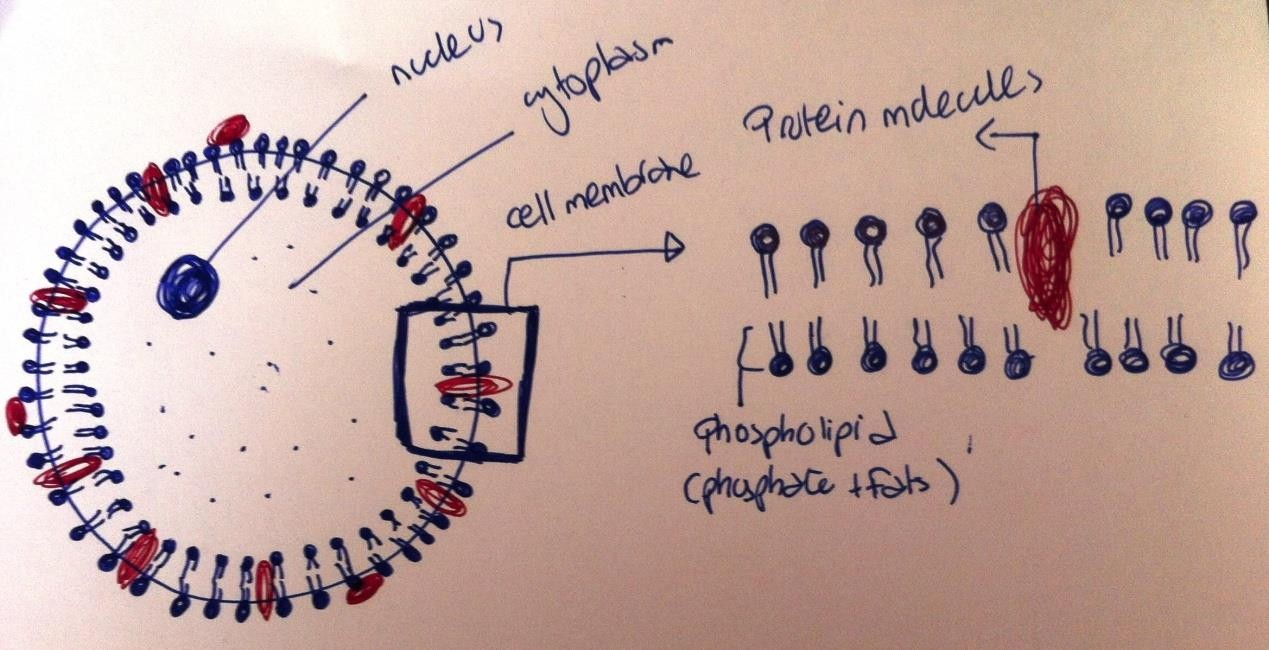 nucleus
cytoplasm
cell membrane
Protein molecules
phospholipid
(phosphate + fats)